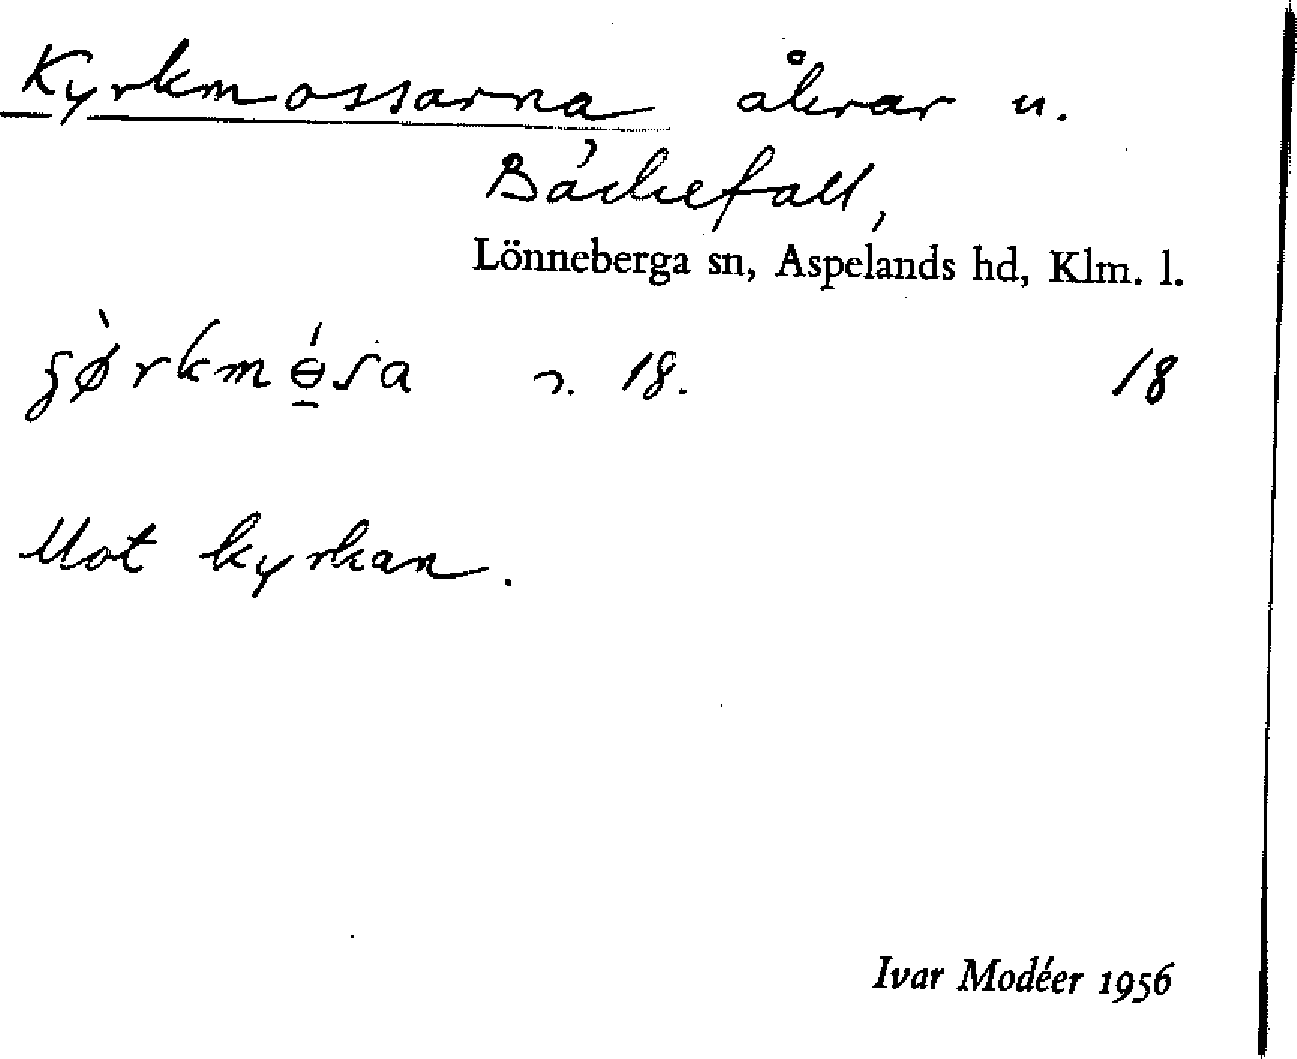 Kyrkmossarna åkrar u.
Bäckefall,
Lönneberga sn, Aspelands hd, Klm. l.
18. 18
Mot kyrkan.
Ivar Modéer 1956